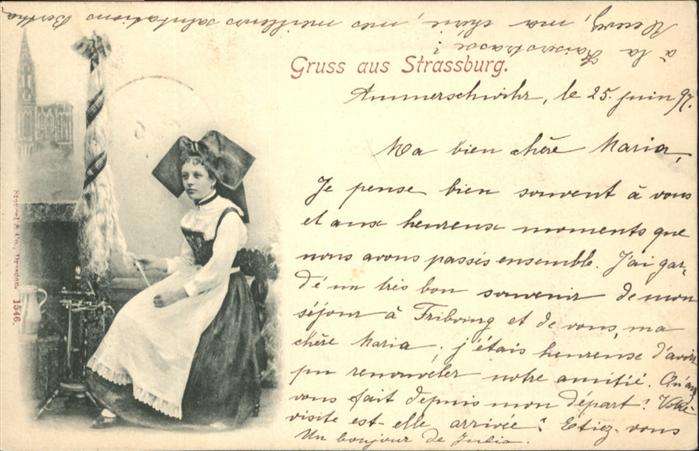 Gruss aus Strassburg.
Ammerschwihr, le 25 juin 97.
Ma bien chère Maria,
Je pense bien souvent à vous
et aux heureux moments que
nous avons passés ensemble. J'ai gar-
dé un très bon souvenir de mon
séjour à Fribourg et de vous, ma
chère Maria; j'étais heureuse d'avoir
pu renouveler notre amitié. Qu'avez
vous fait depuis mon départ? Votre
visite est-elle arrivée? Etiez-vous
à la Kaiserstrasse?
ma chérie, mes meilleures salutations Bertha
Un bonjour de Julia.
1546.